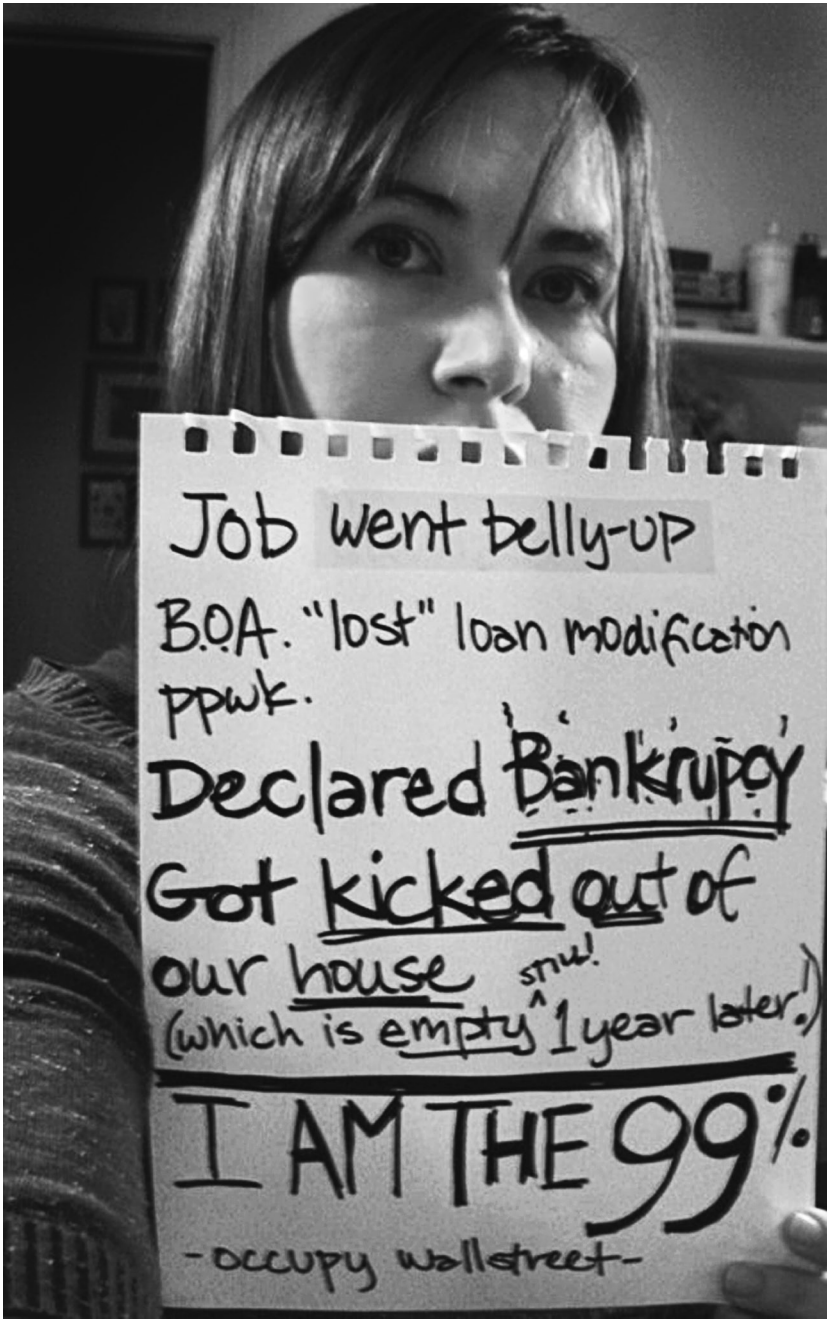 Job went belly-up
B.O.A. "lost" loan modification
ppwk.
Declared Bankrupcy
Got kicked out of
our house still!
(which is empty ^ 1 year later!)
I AM THE 99%
-occupy wallstreet-